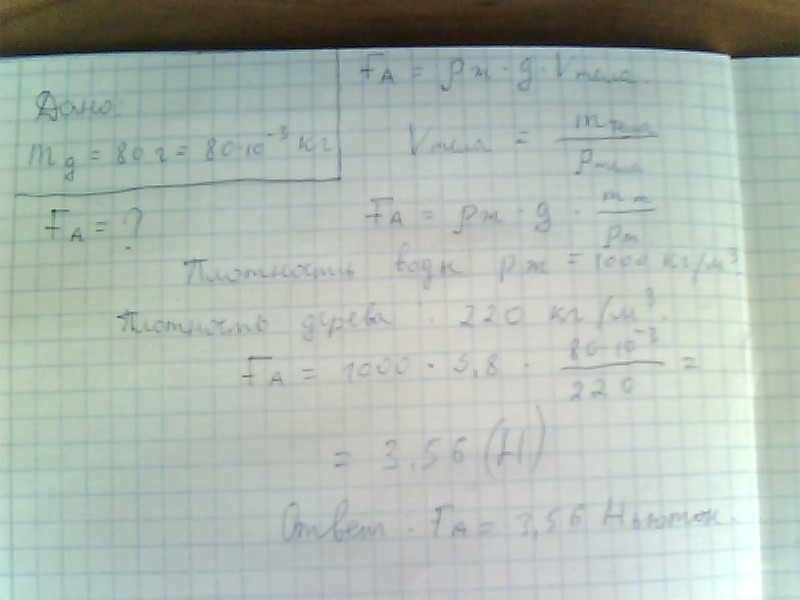 Дано:
m д = 80 г = 80·10⁻³ кг
FА = ?
FА = ρж · g · Vтела.
Vтела = mтела / ρтела
FА = ρж · g · mт / ρт
Плотность воды ρж = 1000 кг/м³
Плотность дерева : 220 кг/м³.
FА = 1000 · 9,8 · 80·10⁻³ / 220 =
= 3,56 (Н)
Ответ : FА = 3,56 Ньютон.